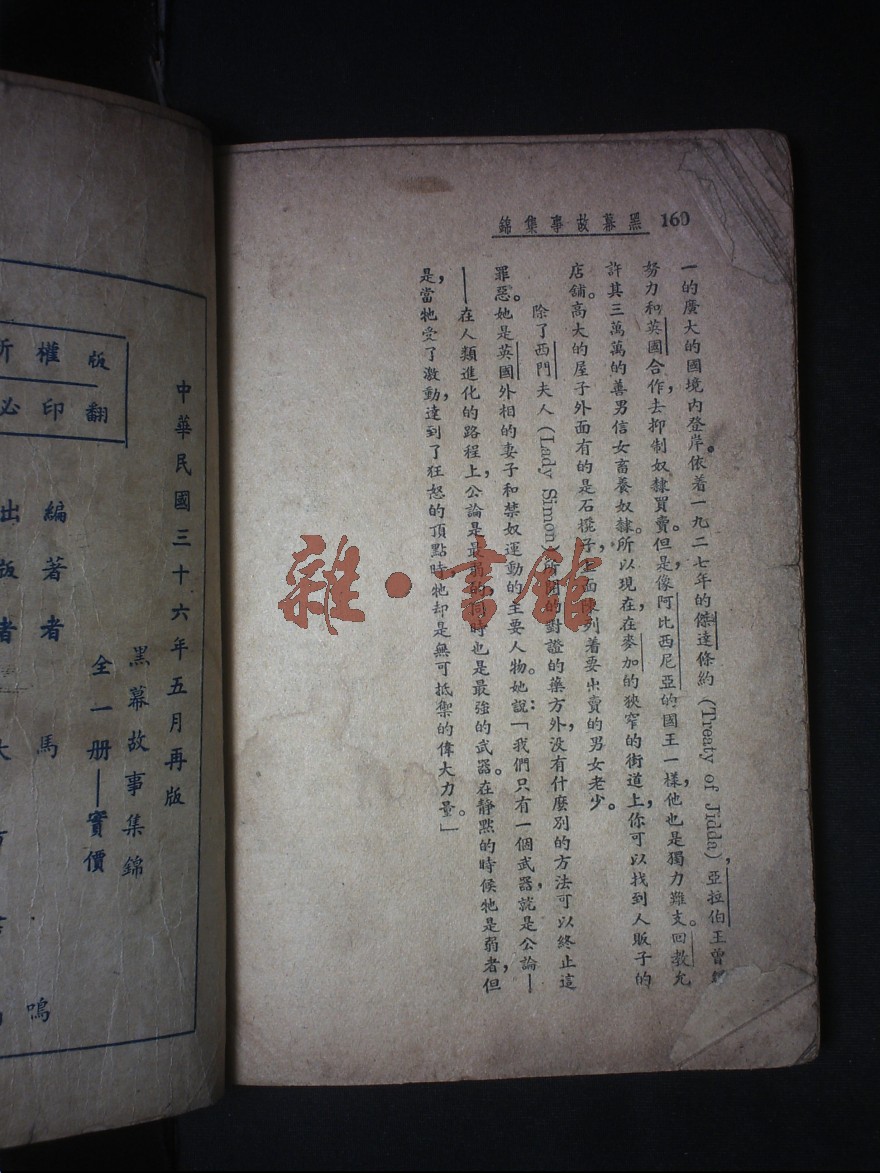 160 黑幕故事集錦
一的廣大的國境內登岸。依着一九二七年的傑達條約(Treaty of Jidda),亞拉伯王曾
努力和英國合作,去抑制奴隸買賣。但是,像阿比西尼亞的國王一樣,他也是獨力難支。回教允
許其三萬萬的善男信女畜養奴隸。所以現在,在麥加的狹窄的街道上,你可以找到人販子的
店舖。高大的屋子外面有的是石櫈子,上面陳列着要出賣的男女老少。
除了西門夫人(Lady Simon)所開的對證的藥方外,没有什麽別的方法可以終止這
罪惡。她是英國外相的妻子和禁奴運動的主要人物。她說:「我們只有一個武器,就是公論—
—在人類進化的路程上,公論是最弱的,同時也是最強的武器。在静默的時候牠是弱者,但
是,當牠受了激動,達到了狂怒的頂點時,牠却是無可抵禦的偉大力量。」
雜·書館
中華民國三十六年五月再版
黑幕故事集錦
全一册——實價
編著者 馬 鳴
出版者 大方
版權所
翻印必